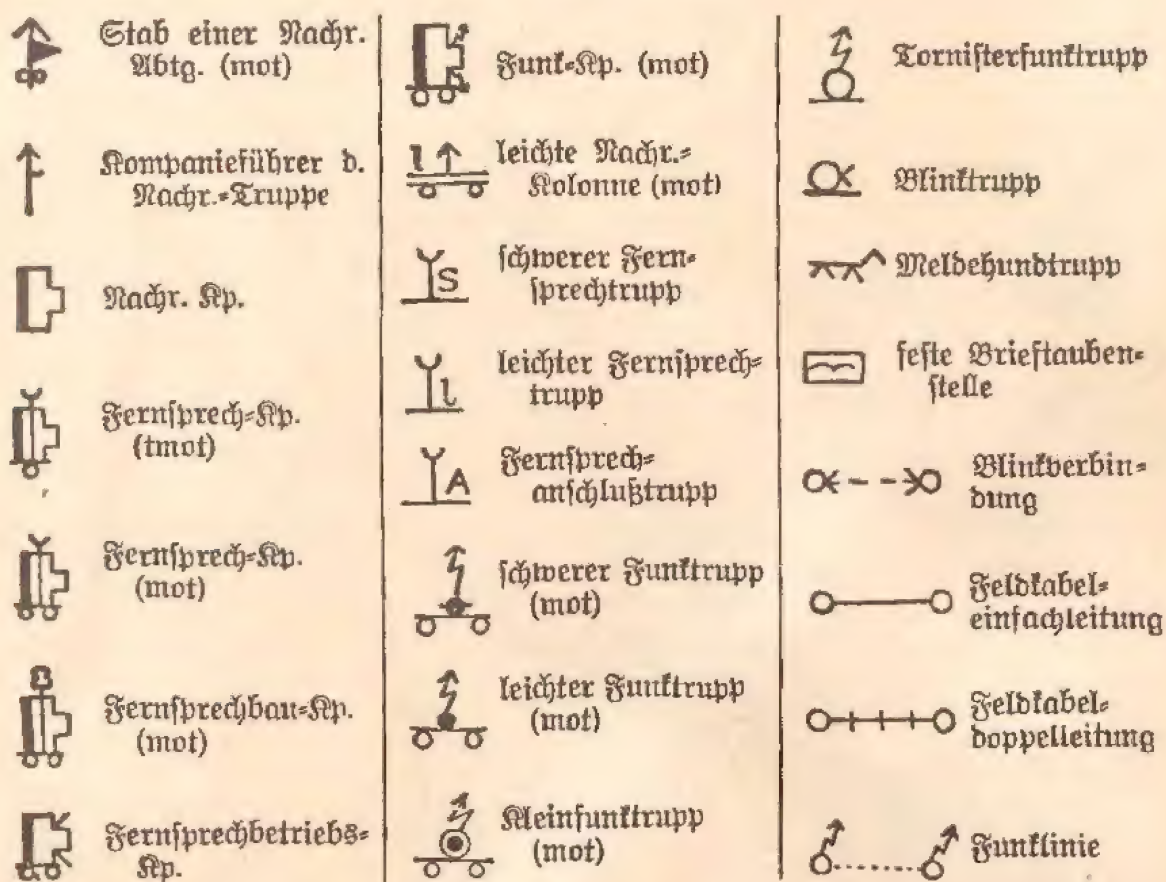 Stab einer Nachr.
Abtg. (mot)
Kompanieführer d.
Nachr.-Truppe
Nachr. Kp.
Fernsprech-Kp.
(tmot)
Fernsprech-Kp.
(mot)
Fernsprechbau-Kp.
(mot)
Fernsprechbetriebs-
Kp.
Funk-Kp. (mot)
l
leichte Nachr.-
Kolonne (mot)
S
schwerer Fern-
sprechtrupp
l
leichter Fernsprech-
trupp
A
Fernsprech-
anschlußtrupp
schwerer Funktrupp
(mot)
leichter Funktrupp
(mot)
Kleinfunktrupp
(mot)
Tornisterfunktrupp
Blinktrupp
Meldehundtrupp
feste Brieftauben-
stelle
Blinkverbin-
dung
Feldkabel-
einfachleitung
Feldkabel-
doppelleitung
Funklinie